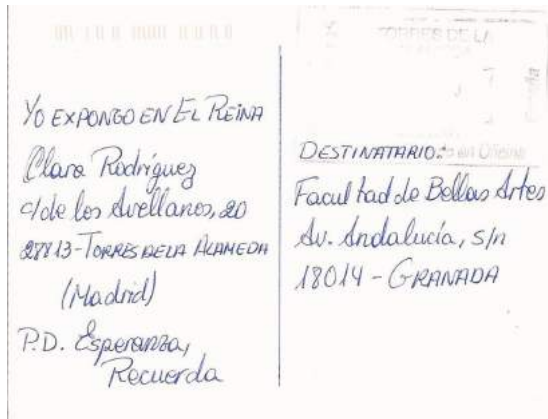 YO EXPONGO EN EL REINA
Clara Rodríguez
c/de los Avellanos, 20
28813-TORRES DE LA ALAMEDA
(Madrid)
P.D. Esperanza,
Recuerda
TORRES DE LA
DESTINATARIO:
Facultad de Bellas Artes
Av. Andalucía, s/n
18014 - GRANADA